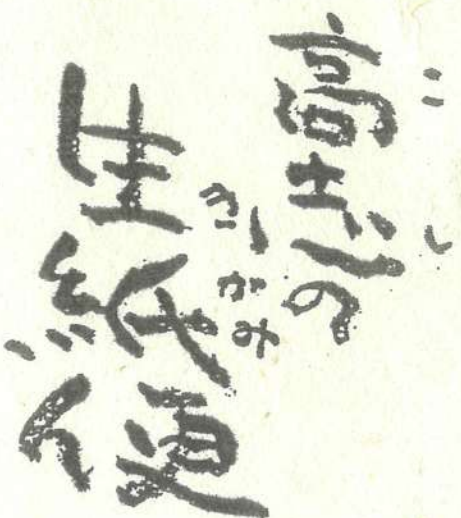 高志の
こし
生紙便
きがみ